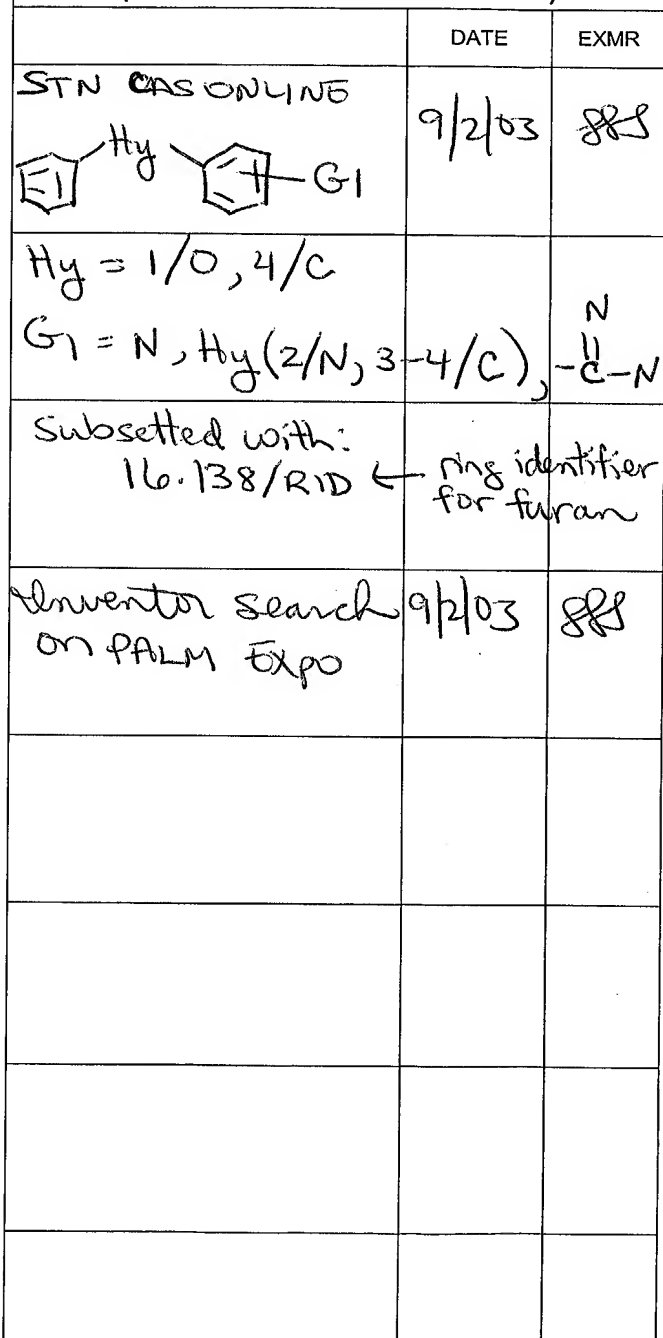 DATE EXMR
STN CAS ONLINE
9/2/03
Hy
G1
Hy = 1/0, 4/C
G1 = N, Hy (2/N, 3-4/C), -C-N
N
Subsetted with:
16.138/RID ← ring identifier
for furan
Inventor search 9/2/03
on PALM Expo